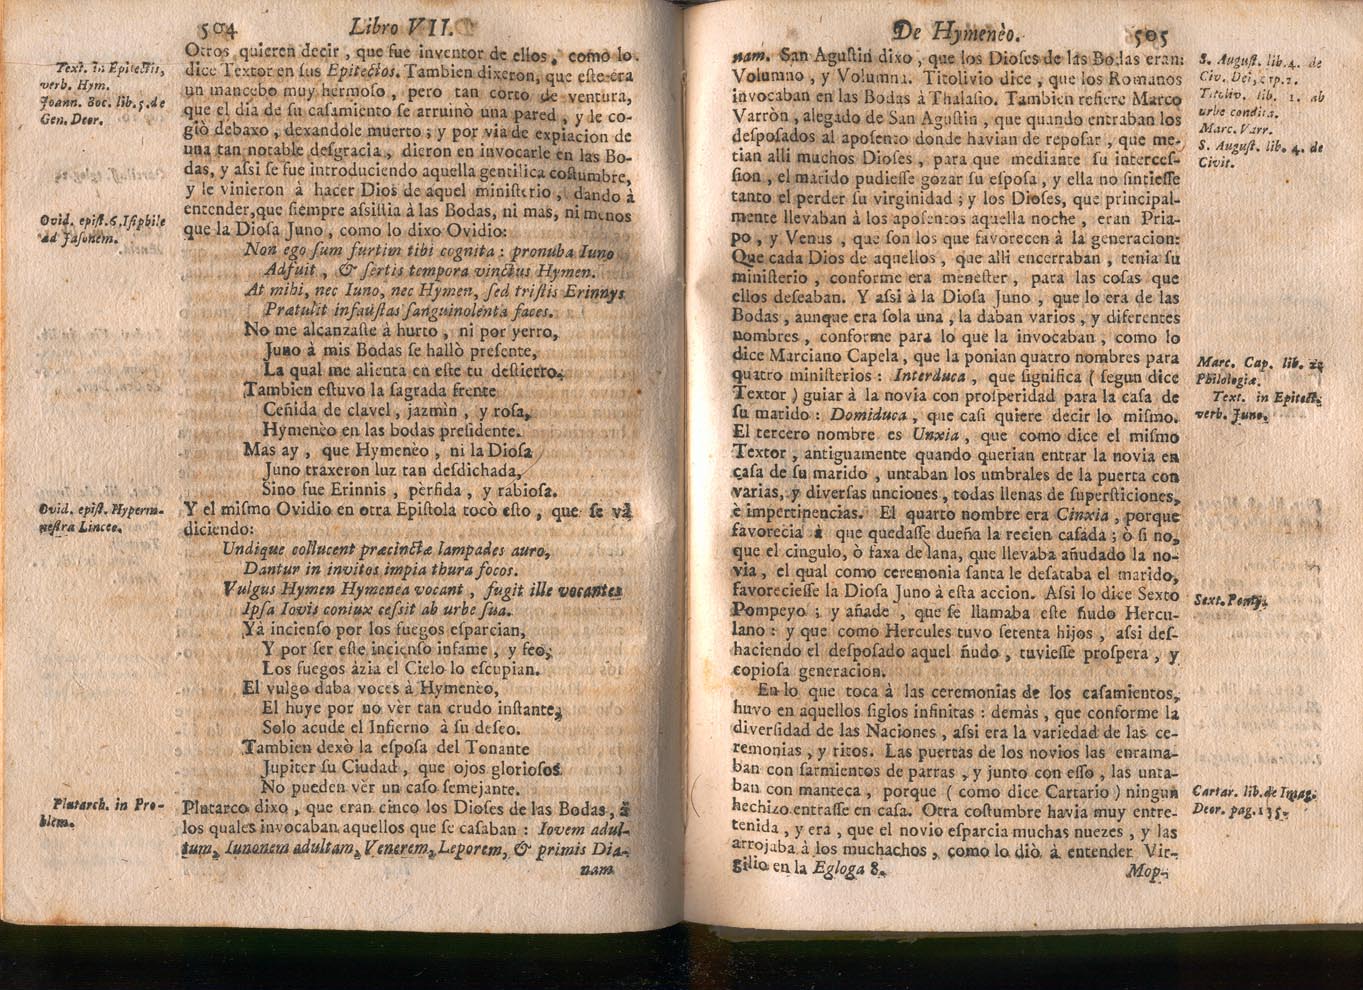 504 Libro VII.
Otros quieren decir, que fue inventor de ellos, como lo
dice Textor en sus Epitectos. Tambien dixeron, que este era
un mancebo muy hermoso, pero tan corto de ventura,
que el dia de su casamiento se arruinò una pared, y le co-
giò debaxo, dexandole muerto; y por via de expiacion de
una tan notable desgracia, dieron en invocarle en las Bo-
das, y assi se fue introduciendo aquella gentilica costumbre,
y le vinieron à hacer Dios de aquel ministerio, dando à
entender, que siempre assistia à las Bodas, ni mas, ni menos
que la Diosa Juno, como lo dixo Ovidio:
Non ego sum furtim tibi cognita: pronuba Iuno
Adfuit, & sertis tempora vinctus Hymen.
At mihi, nec Iuno, nec Hymen, sed tristis Erinnys
Prætulit infaustas sanguinolenta faces.
No me alcanzaste à hurto, ni por yerro,
Juno à mis Bodas se hallò presente,
La qual me alienta en este tu destierro.
Tambien estuvo la sagrada frente
Ceñida de clavel, jazmin, y rosa,
Hymenèo en las bodas presidente.
Mas ay, que Hymenèo, ni la Diosa
Juno traxeron luz tan desdichada,
Sino fue Erinnis, pèrfida, y rabiosa.
Y el mismo Ovidio en otra Epistola tocò esto, que se và
diciendo:
Undique collucent præcinctæ lampades auro,
Dantur in invitos impia thura focos.
Vulgus Hymen Hymenea vocant, fugit ille vocantes
Ipsa Iovis coniux cessit ab urbe sua.
Yà incienso por los fuegos esparcian,
Y por ser este incienso infame, y feo,
Los fuegos àzia el Cielo lo escupian.
El vulgo daba voces à Hymenèo,
El huye por no vèr tan crudo instante,
Solo acude el Infierno à su deseo.
Tambien dexò la esposa del Tonante
Jupiter su Ciudad, que ojos gloriosos
No pueden vèr un caso semejante.
Plutarco dixo, que eran cinco los Dioses de las Bodas, à
los quales invocaban aquellos que se casaban: Iovem adul-
tum, Iunonem adultam, Venerem, Leporem, & primis Dia-
nam
Text. in Epitectis,
verb. Hym.
Joann. Boc. lib. 5. de
Gen. Deor.
Ovid. epist. 6. Isiphile
ad Jasonem.
Ovid. epist. Hyperm-
nestra Lincee.
Plutarch. in Pro-
blem.
De Hymenèo. 505
nam. San Agustin dixo, que los Dioses de las Bodas eran:
Volumno, y Volumna. Titolivio dice, que los Romanos
invocaban en las Bodas à Thalasio. Tambien refiere Marco
Varròn, alegado de San Agustin, que quando entraban los
desposados al aposento donde havian de reposar, que me-
tian alli muchos Dioses, para que mediante su interces-
sion, el marido pudiesse gozar su esposa, y ella no sintiesse
tanto el perder su virginidad; y los Dioses, que principal-
mente llevaban à los aposentos aquella noche, eran Pria-
po, y Venus, que son los que favorecen à la generacion:
Que cada Dios de aquellos, que alli encerraban, tenia su
ministerio, conforme era menester, para las cosas que
ellos deseaban. Y assi à la Diosa Juno, que lo era de las
Bodas, aunque era sola una, la daban varios, y diferentes
nombres, conforme para lo que la invocaban, como lo
dice Marciano Capela, que la ponian quatro nombres para
quatro ministerios: Interduca, que significa (segun dice
Textor) guiar à la novia con prosperidad para la casa de
su marido: Domiduca, que casi quiere decir lo mismo.
El tercero nombre es Unxia, que como dice el mismo
Textor, antiguamente quando querian entrar la novia en
casa de su marido, untaban los umbrales de la puerta con
varias, y diversas unciones, todas llenas de supersticiones,
è impertinencias. El quarto nombre era Cinxia, porque
favorecia à que quedasse dueña la recien casada; ò si no,
que el cingulo, ò faxa de lana, que llevaba añudado la no-
via, el qual como ceremonia santa le desataba el marido,
favoreciesse la Diosa Juno à esta accion. Assi lo dice Sexto
Pompeyo; y añade, que se llamaba este ñudo Hercu-
lano: y que como Hercules tuvo setenta hijos, assi des-
haciendo el desposado aquel ñudo, tuviesse prospera, y
copiosa generacion.
En lo que toca à las ceremonias de los casamientos,
huvo en aquellos siglos infinitas: demàs, que conforme la
diversidad de las Naciones, assi era la variedad de las ce-
remonias, y ritos. Las puertas de los novios las enrama-
ban con sarmientos de parras, y junto con esso, las unta-
ban con manteca, porque (como dice Cartario) ningun
hechizo entrasse en casa. Otra costumbre havia muy entre-
tenida, y era, que el novio esparcia muchas nuezes, y las
arrojaba à los muchachos, como lo diò à entender Vir-
gilio en la Egloga 8.
Mop-
S. August. lib. 4. de
Civ. Dei, cap. 1.
Titoliv. lib. 1. ab
urbe condita.
Marc. Varr.
S. August. lib. 4. de
Civit.
Marc. Cap. lib.
Philologiæ.
Text. in Epitect.
verb. Juno.
Sext. Pomp.
Cartar. lib. de Imag.
Deor. pag. 135.